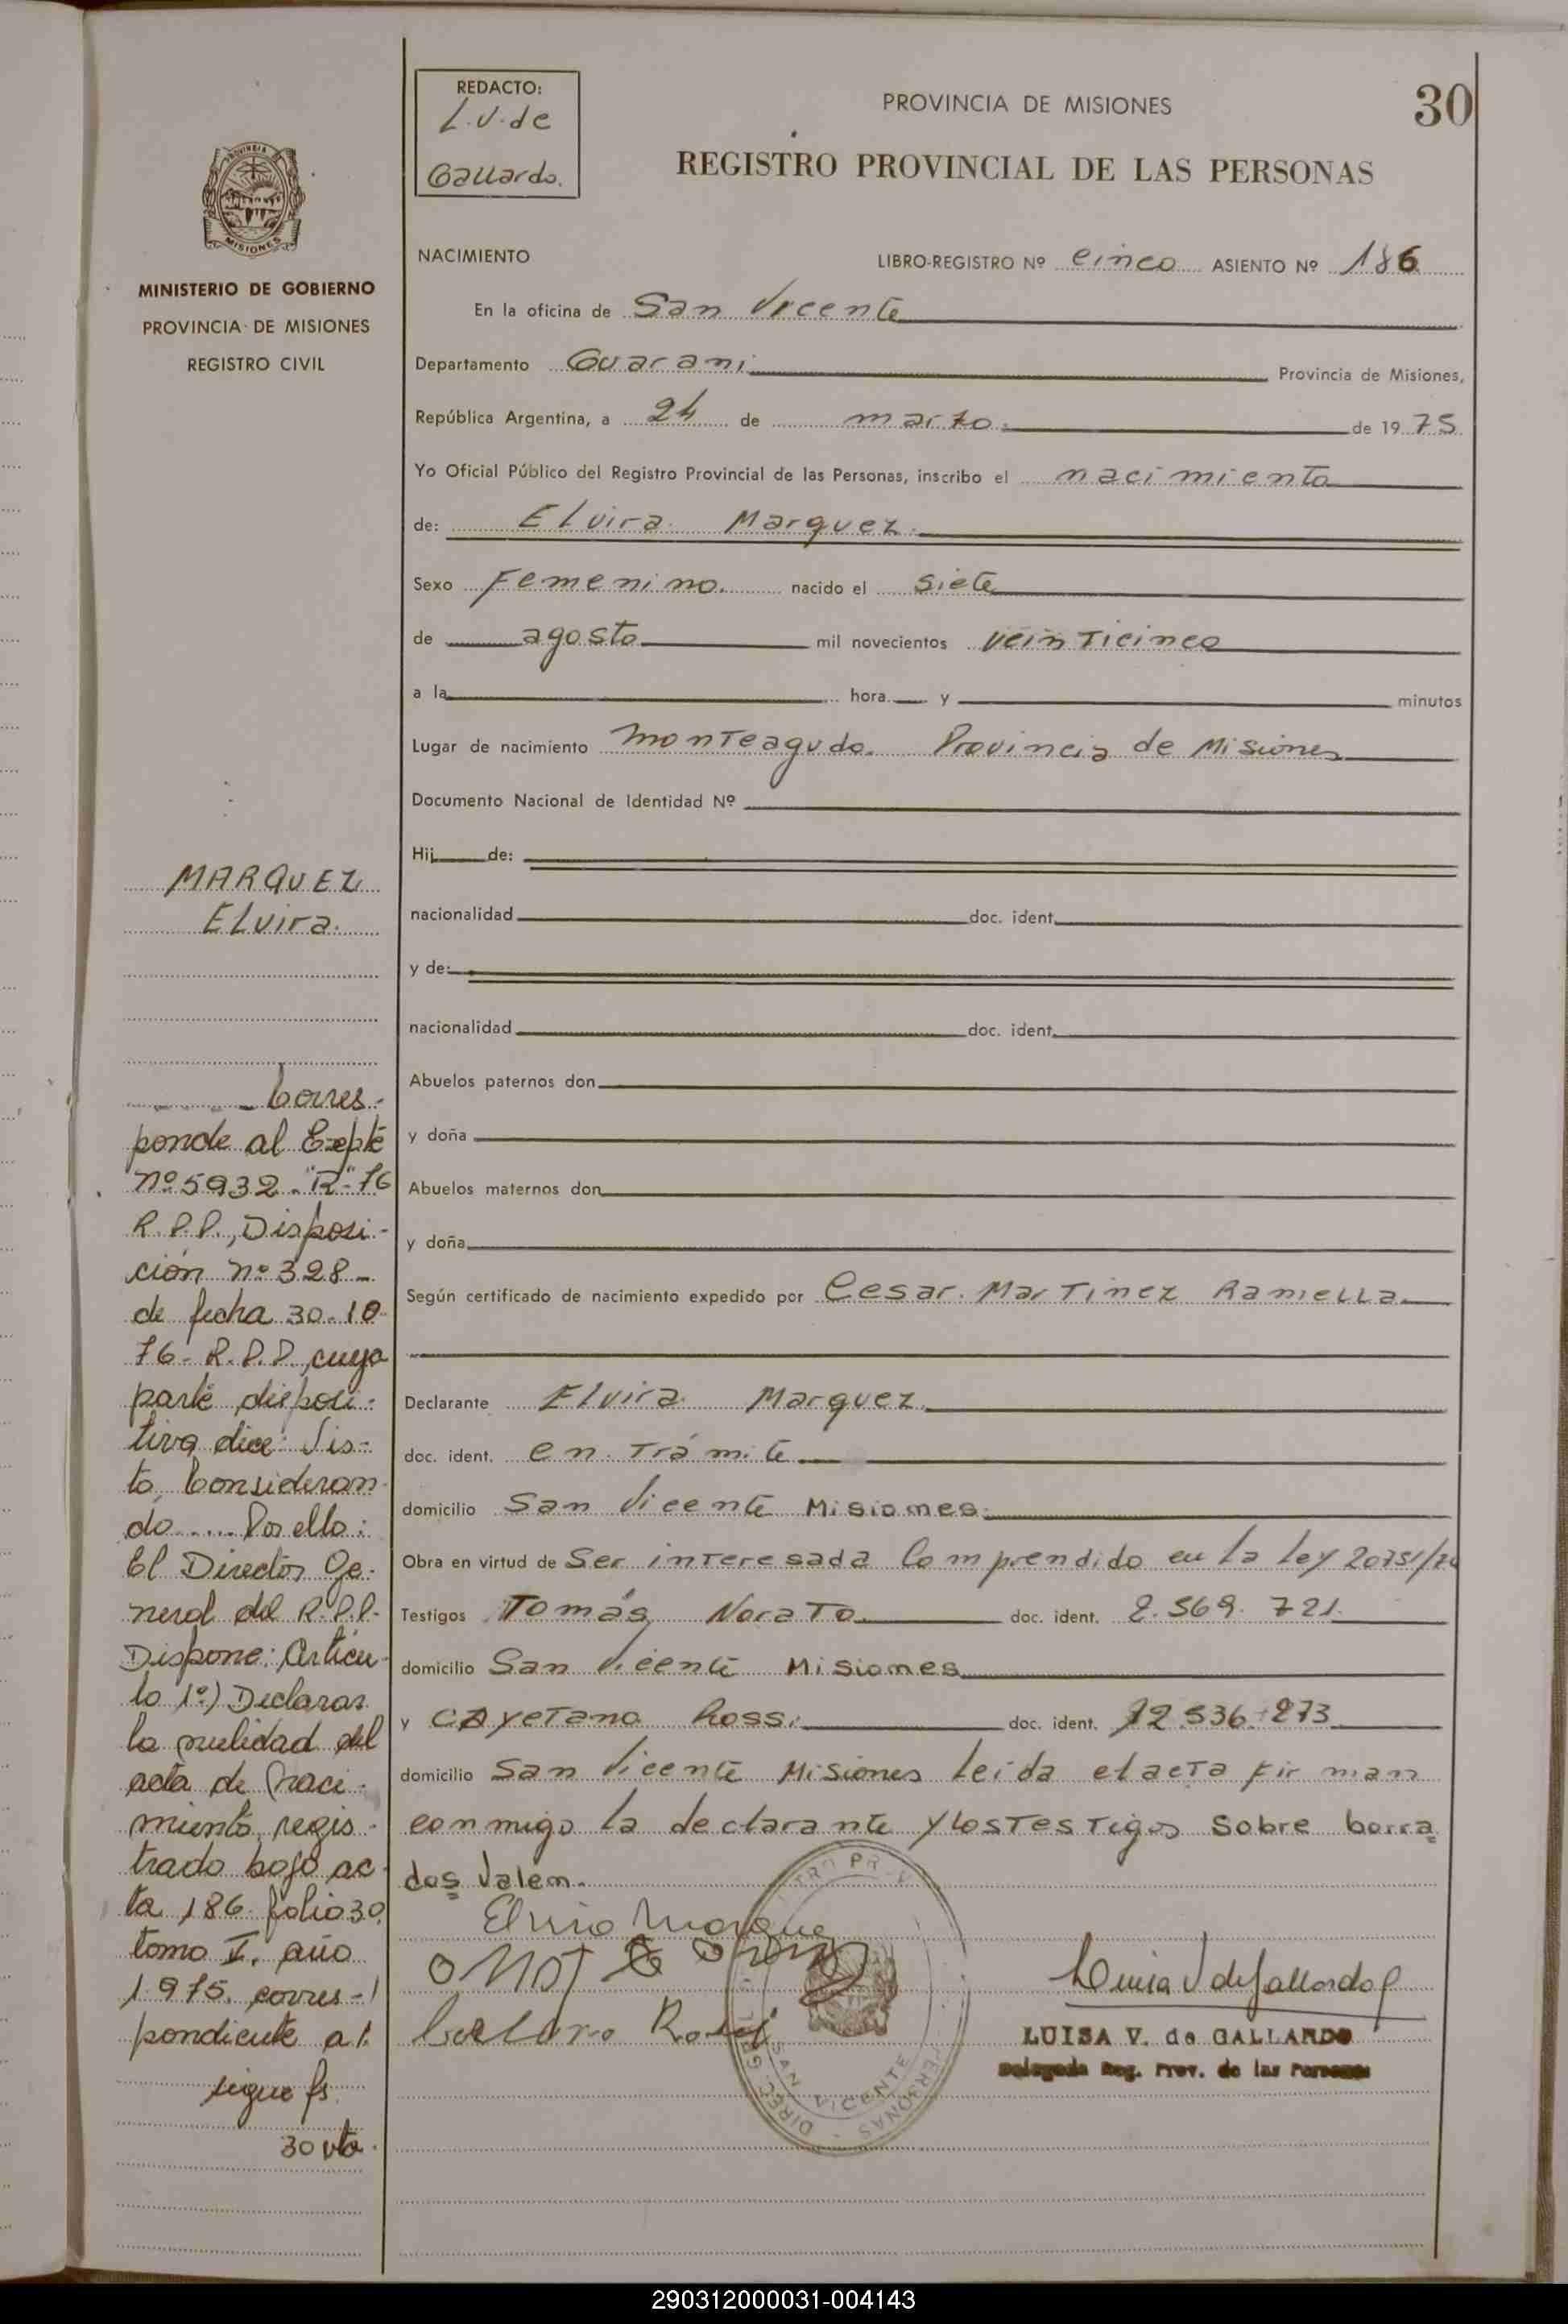 REDACTO:
L.V. de
Gallardo.
PROVINCIA DE MISIONES
30
REGISTRO PROVINCIAL DE LAS PERSONAS
PROVINCIA
MISIONES
MINISTERIO DE GOBIERNO
PROVINCIA DE MISIONES
REGISTRO CIVIL
NACIMIENTO
LIBRO-REGISTRO Nº cinco ASIENTO Nº 186
En la oficina de San Vicente
Departamento Guarani Provincia de Misiones,
República Argentina, a 24 de marzo. de 1975
Yo Oficial Público del Registro Provincial de las Personas, inscribo el nacimiento
de: Elvira Marquez.
Sexo Femenino. nacido el siete
de agosto mil novecientos veinticinco
a la hora y minutos
Lugar de nacimiento Monteagudo. Provincia de Misiones
Documento Nacional de Identidad Nº
Hij de:
nacionalidad doc. ident.
y de:
nacionalidad doc. ident.
Abuelos paternos don
y doña
Abuelos maternos don
y doña
Según certificado de nacimiento expedido por Cesar. Martinez Ramella.
Declarante Elvira Marquez.
doc. ident. en trámite
domicilio San Vicente Misiones.
Obra en virtud de Ser interesada Comprendido en la Ley 20751/74
Testigos Tomás Norato. doc. ident. 2.569.721.
domicilio San Vicente Misiones
y Cayetano Rossi. doc. ident. 12.536.273
domicilio San Vicente Misiones leída el acta firman
conmigo la declarante y los Testigos Sobre borra
dos Valen.
Luisa V de Gallardo
LUISA V. de GALLARDO
Delegada Reg. Prov. de las Personas
SAN VICENTE
MARQUEZ
Elvira.
Corres-
ponde al Expte
nº 5932 "R" 76
R.P.P., Disposi-
ción nº 328-
de fecha 30-10-
76- R.P.P, cuya
parte disposi-
tiva dice: Vis-
to, Consideran
do..... Por ello:
El Director Ge-
neral del R.P.P.
Dispone: Articu-
lo 1º) Declarar
la nulidad del
acta de Naci-
miento, regis-
trado bajo ac-
ta 186 folio 30.
tomo I. año
1.975. corres-
pondiente a
sigue fs.
30 vta.
290312000031-004143